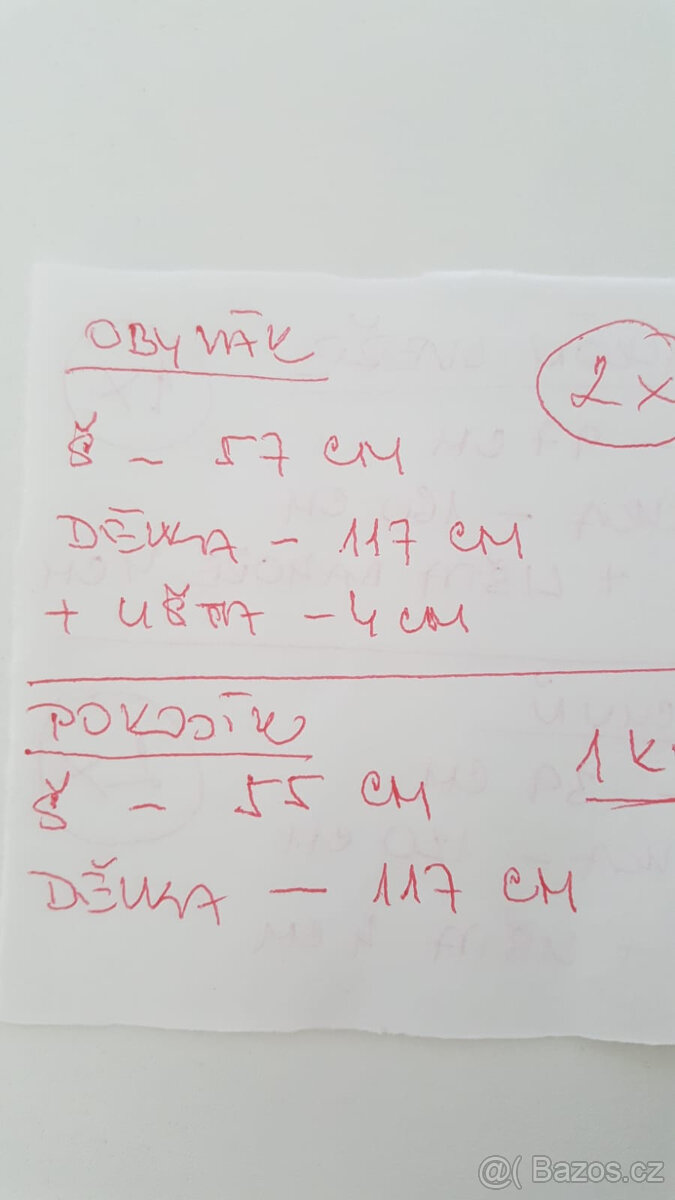 OBYVÁK
2x
Š - 57 CM
DÉLKA - 117 CM
+ LIŠTA - 4 CM
POKOJÍK
1 K
Š - 55 CM
DĚLKA - 117 CM
@( Bazos.cz